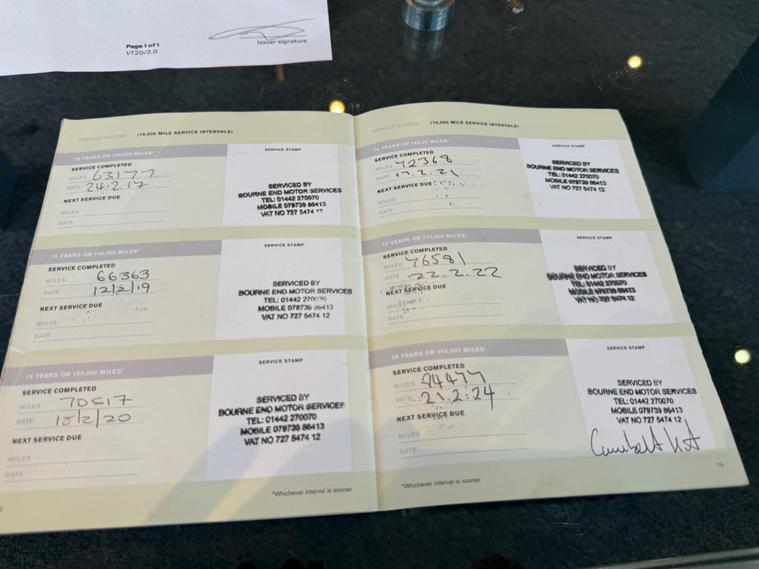 Page 1 of 1
VT20/2.0
Issuer signature
SERVICE RECORD (10,000 MILE SERVICE INTERVALS)
SERVICE COMPLETED
MILES 63177
DATE 24.2.17
NEXT SERVICE DUE
MILES
DATE
SERVICE STAMP
SERVICED BY
BOURNE END MOTOR SERVICES
TEL: 01442 270070
MOBILE 079739 86413
VAT NO 727 5474 12
14 YEARS OR 140,000 MILES*
SERVICE COMPLETED
MILES 66363
DATE 12/2/19
NEXT SERVICE DUE
MILES
DATE
SERVICE STAMP
SERVICED BY
BOURNE END MOTOR SERVICES
TEL: 01442 270070
MOBILE 079739 86413
VAT NO 727 5474 12
15 YEARS OR 150,000 MILES*
SERVICE COMPLETED
MILES 70517
DATE 18/2/20
NEXT SERVICE DUE
MILES
DATE
SERVICE STAMP
SERVICED BY
BOURNE END MOTOR SERVICES
TEL: 01442 270070
MOBILE 079739 86413
VAT NO 727 5474 12
*Whichever interval is sooner
SERVICE RECORD (10,000 MILE SERVICE INTERVALS)
16 YEARS OR 160,000 MILES*
SERVICE COMPLETED
MILES 72368
DATE 2.21
NEXT SERVICE DUE
MILES
DATE
SERVICE STAMP
SERVICED BY
BOURNE END MOTOR SERVICES
TEL: 01442 270070
MOBILE 079739 86413
VAT NO 727 5474 12
17 YEARS OR 170,000 MILES*
SERVICE COMPLETED
MILES 76581
DATE 22.2.22
NEXT SERVICE DUE
MILES
DATE
SERVICE STAMP
SERVICED BY
BOURNE END MOTOR SERVICES
TEL: 01442 270070
MOBILE 079739 86413
VAT NO 727 5474 12
18 YEARS OR 180,000 MILES*
SERVICE COMPLETED
MILES
DATE 21.2.24
NEXT SERVICE DUE
MILES
DATE
SERVICE STAMP
SERVICED BY
BOURNE END MOTOR SERVICES
TEL: 01442 270070
MOBILE 079739 86413
VAT NO 727 5474 12
*Whichever interval is sooner